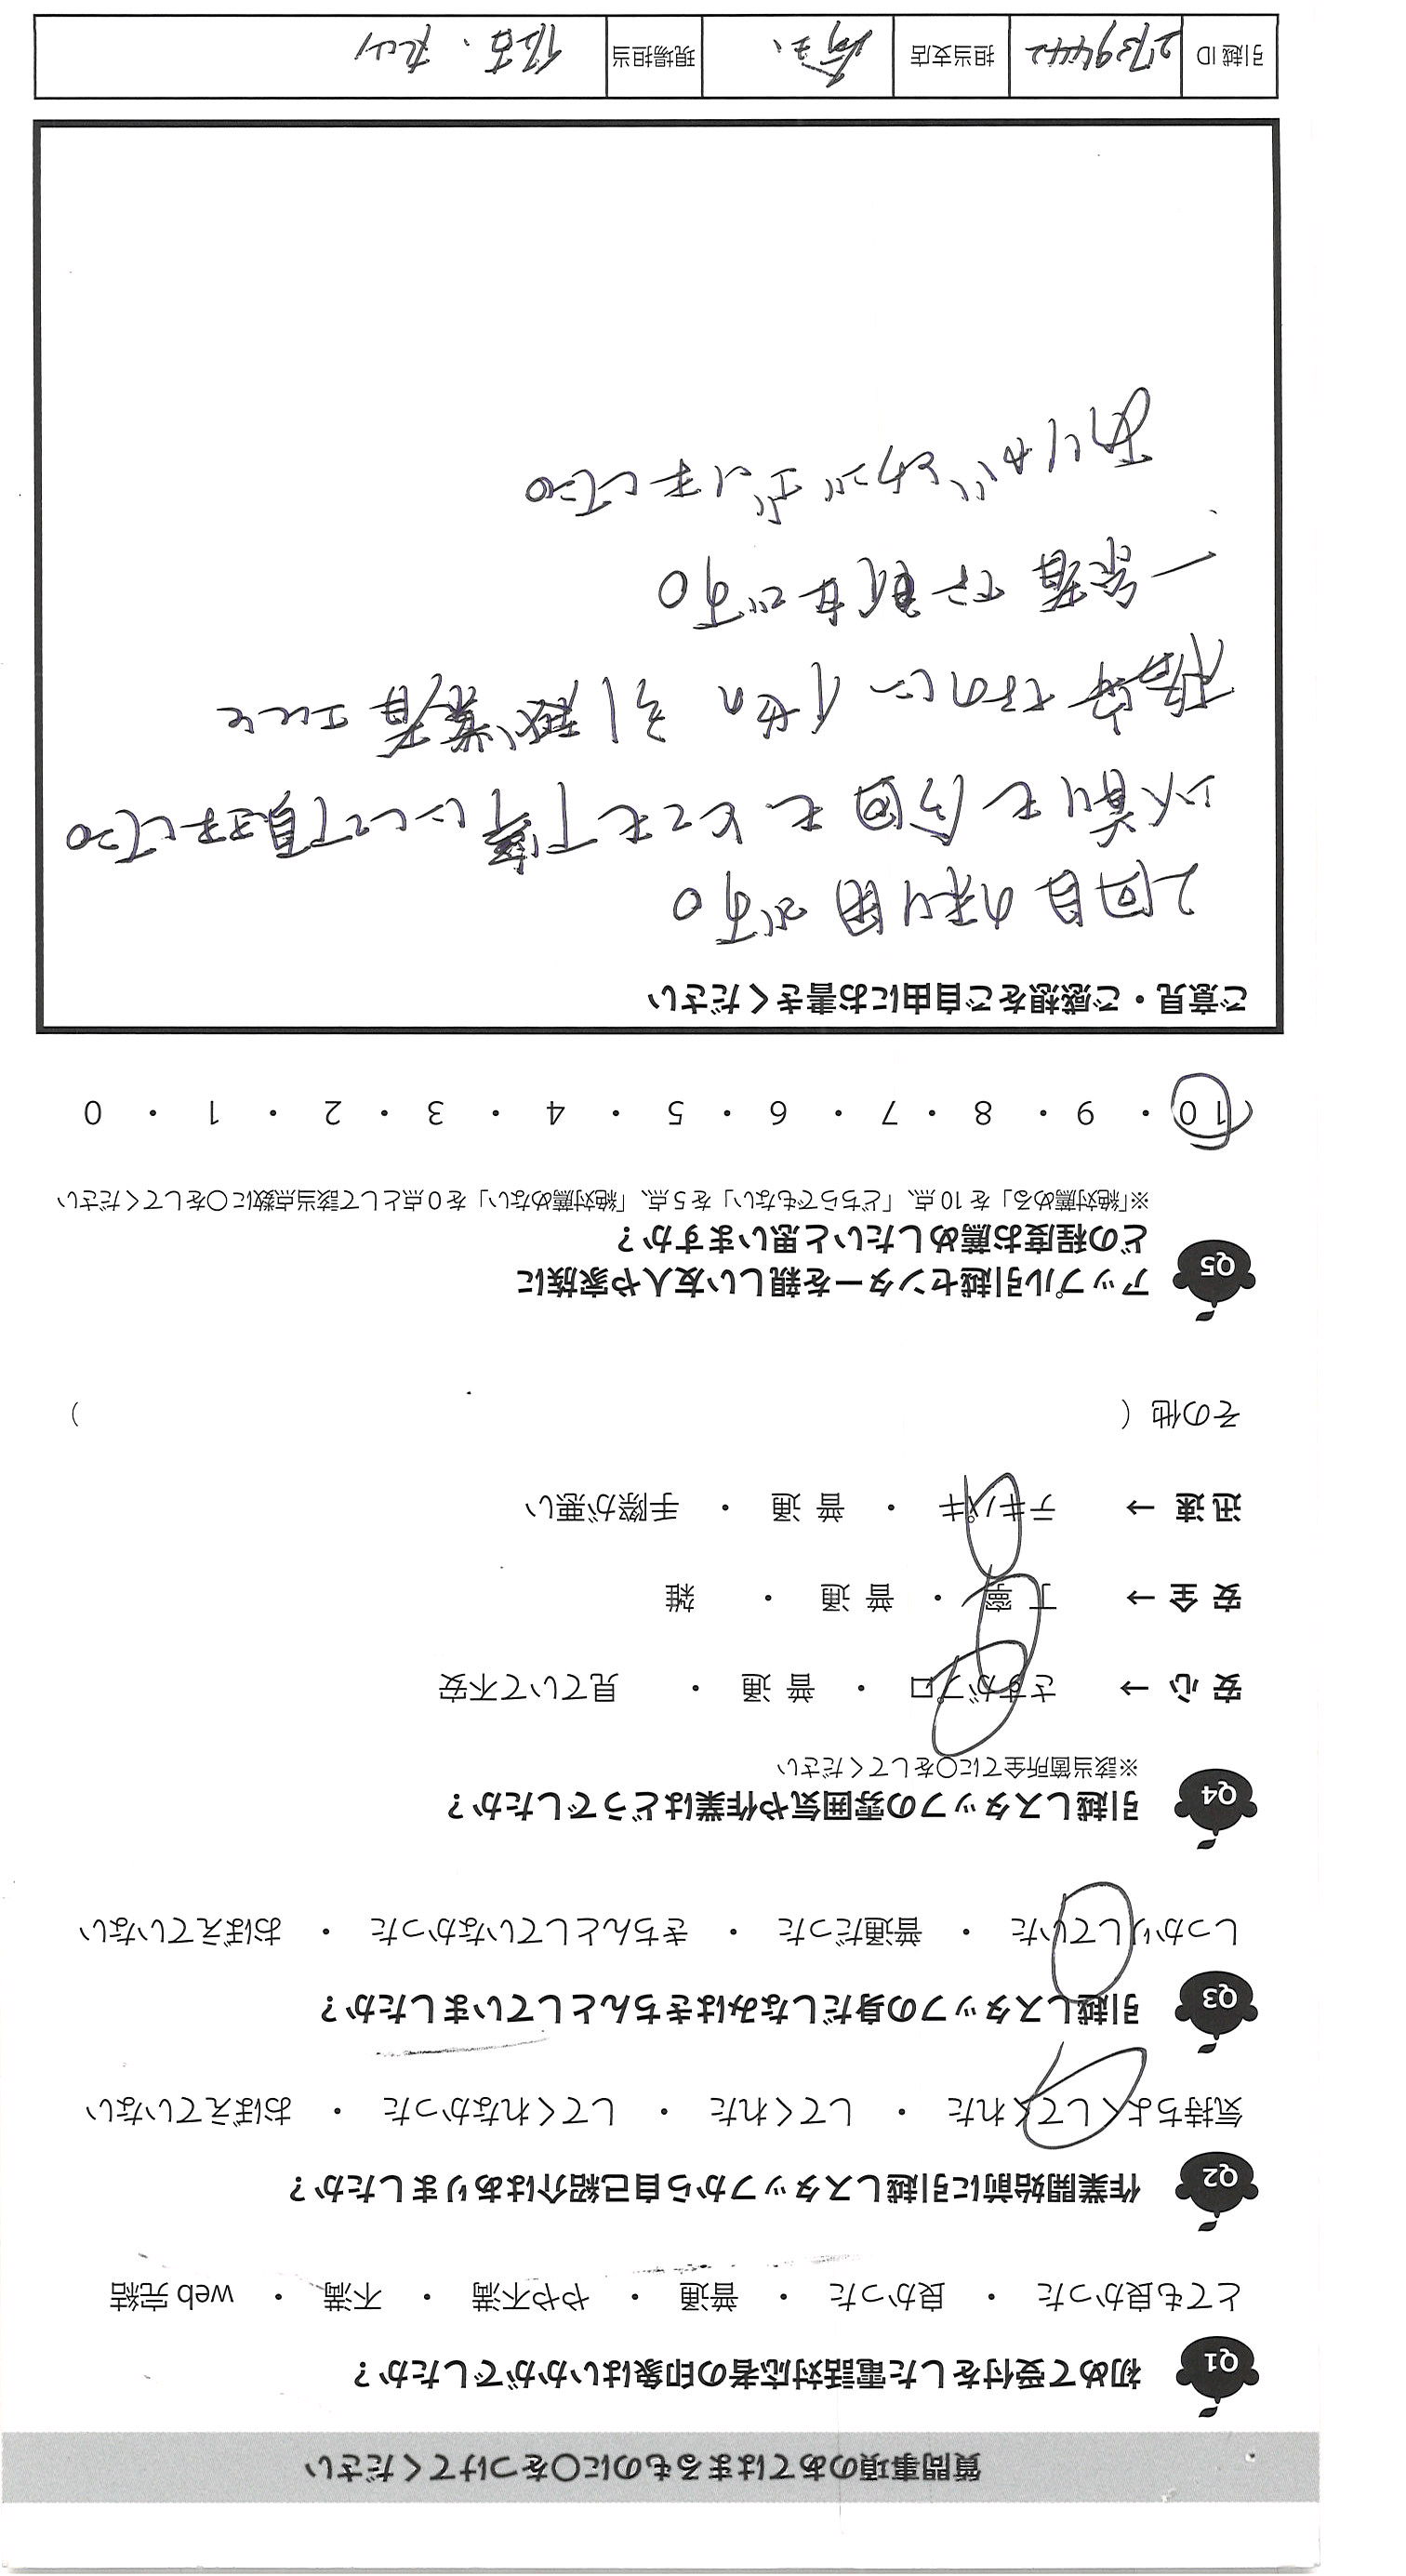 質問事項のあてはまるものに○をつけてください
Q1 初めて受付をした電話対応者の印象はいかがでしたか？
とても良かった ・ 良かった ・ 普通 ・ やや不満 ・ 不満 ・ web 完結
Q2 作業開始前に引越しスタッフから自己紹介はありましたか？
気持ちよくしてくれた ・ してくれた ・ してくれなかった ・ おぼえていない
Q3 引越しスタッフの身だしなみはきちんとしていましたか？
しっかりしていた ・ 普通だった ・ きちんとしていなかった ・ おぼえていない
Q4 引越しスタッフの雰囲気や作業はどうでしたか？
※該当箇所全てに○をしてください
安 心 → さすがプロ ・ 普 通 ・ 見ていて不安
安 全 → 丁 寧 ・ 普 通 ・ 雑
迅 速 → テキパキ ・ 普 通 ・ 手際が悪い
その他（ ）
Q5 アップル引越センターを親しい友人や家族に
どの程度お薦めしたいと思いますか？
※「絶対薦める」を 10 点、「どちらでもない」を 5 点、「絶対薦めない」を 0 点として該当点数に○をしてください
10 ・ 9 ・ 8 ・ 7 ・ 6 ・ 5 ・ 4 ・ 3 ・ 2 ・ 1 ・ 0
ご意見・ご感想をご自由にお書きください
2回目の利用です。
以前も今回もとても丁寧にして頂きました。
格安なのに 他の 引越業者よりも
一番 信頼大です。
ありがとうございました。
引越 ID 2739442 担当支店 埼玉 現場担当